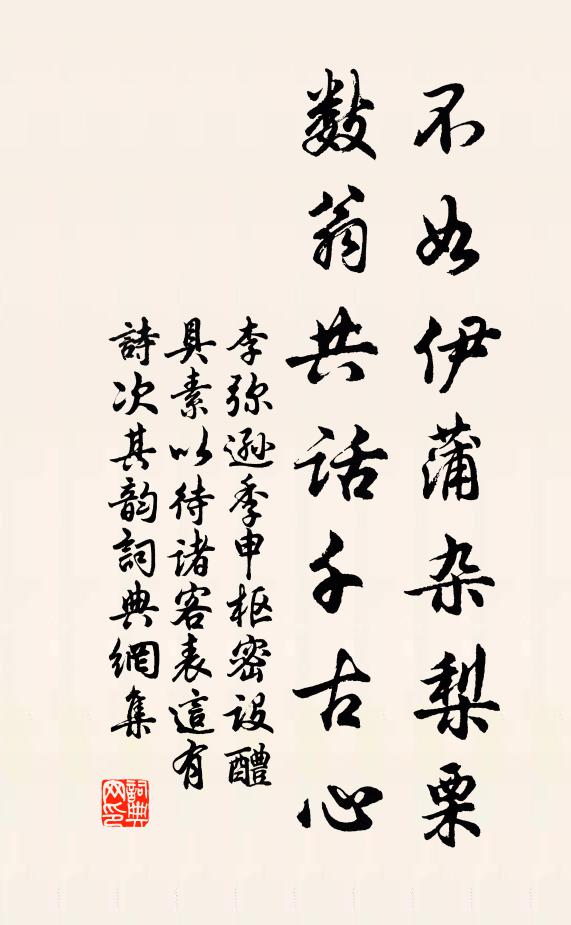 不如伊蒲杂梨栗
数翁共话千古心
李弥逊季申枢密设醴
具素以待诸客表這有
詩次其韵詞典網集
詞典网印